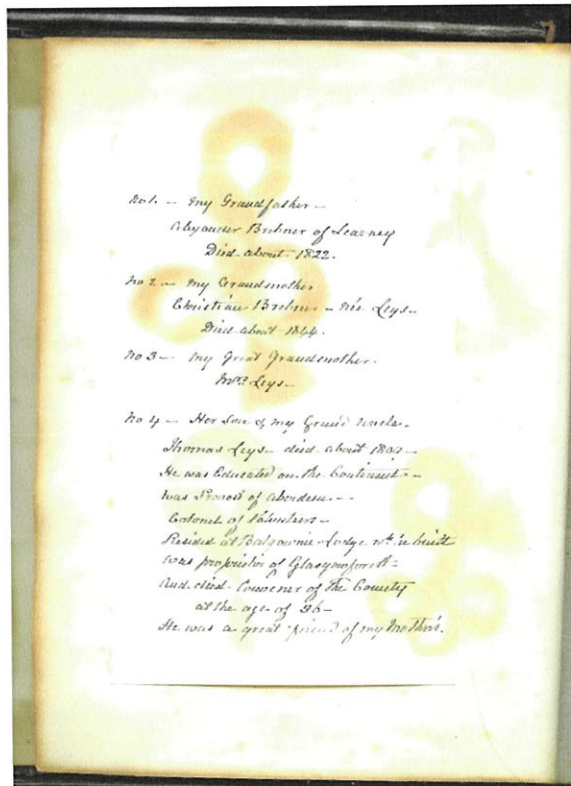 No 1. — My Grandfather —
Alexander Brebner of Learney
Died about 1822.
No 2 — My Grandmother
Christian Brebner — née Leys —
Died about 1844.
No 3 — My Great Grandmother.
Mrs Leys —
No 4 — Her Son & my Grand Uncle.
Thomas Leys — died about
He was Educated on the Continent —
was Provost of Aberdeen —
Colonel of Volunteers —
Resided at Balgownie Lodge wh. he built
was proprietor of Glasgoforest —
And died Convener of the County
at the age of
He was a great friend of my Mother's.